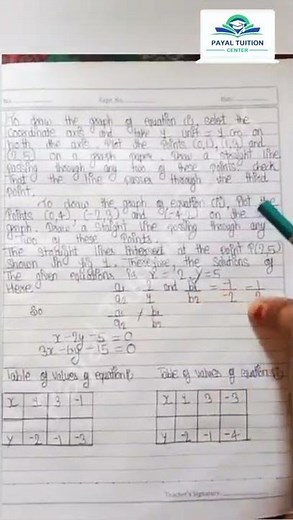 PAYAL TUITION
CENTER
No.
Page No.
Date
To draw the graph of equation (i), select the
coordinate axis and take 1 unit = 1 cm on
both the axis. Plot the points (0,1), (1,3) and
(2,5) on a graph paper. Draw a straight line
passing through any two of these points check
that the line passes through the third
point.
To draw the graph of equation (ii), Plot the
Points (0,4), (-2,3) and (-4, on the
graph. Draw a straight line passing through any
two of these points.
The straight lines intersect at the point P(2,5)
shown in fig 1. Therefore the solutions of
the given equations is x = 2, y=5
Here a1/a2 2/1 and b1/b2 = 1/-2 = -1/2
So a1/a2 ≠ b1/b2
x-2y-5=0
3x-6y-15=0
Table of values of equation Table of values of equation
x 1 3 -1 x 1 3 -3
y -2 -1 -3 y -2 -1 -4
Teacher's Signature